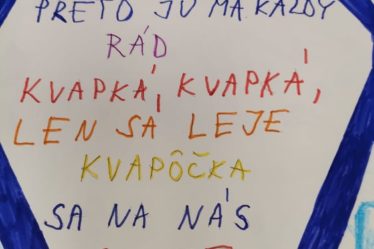 PRETO JU MA KAZDY
RÁD
KVAPKÁ, KVAPKÁ,
LEN SA LEJE
KVAPÔČKA
SA NA NÁS